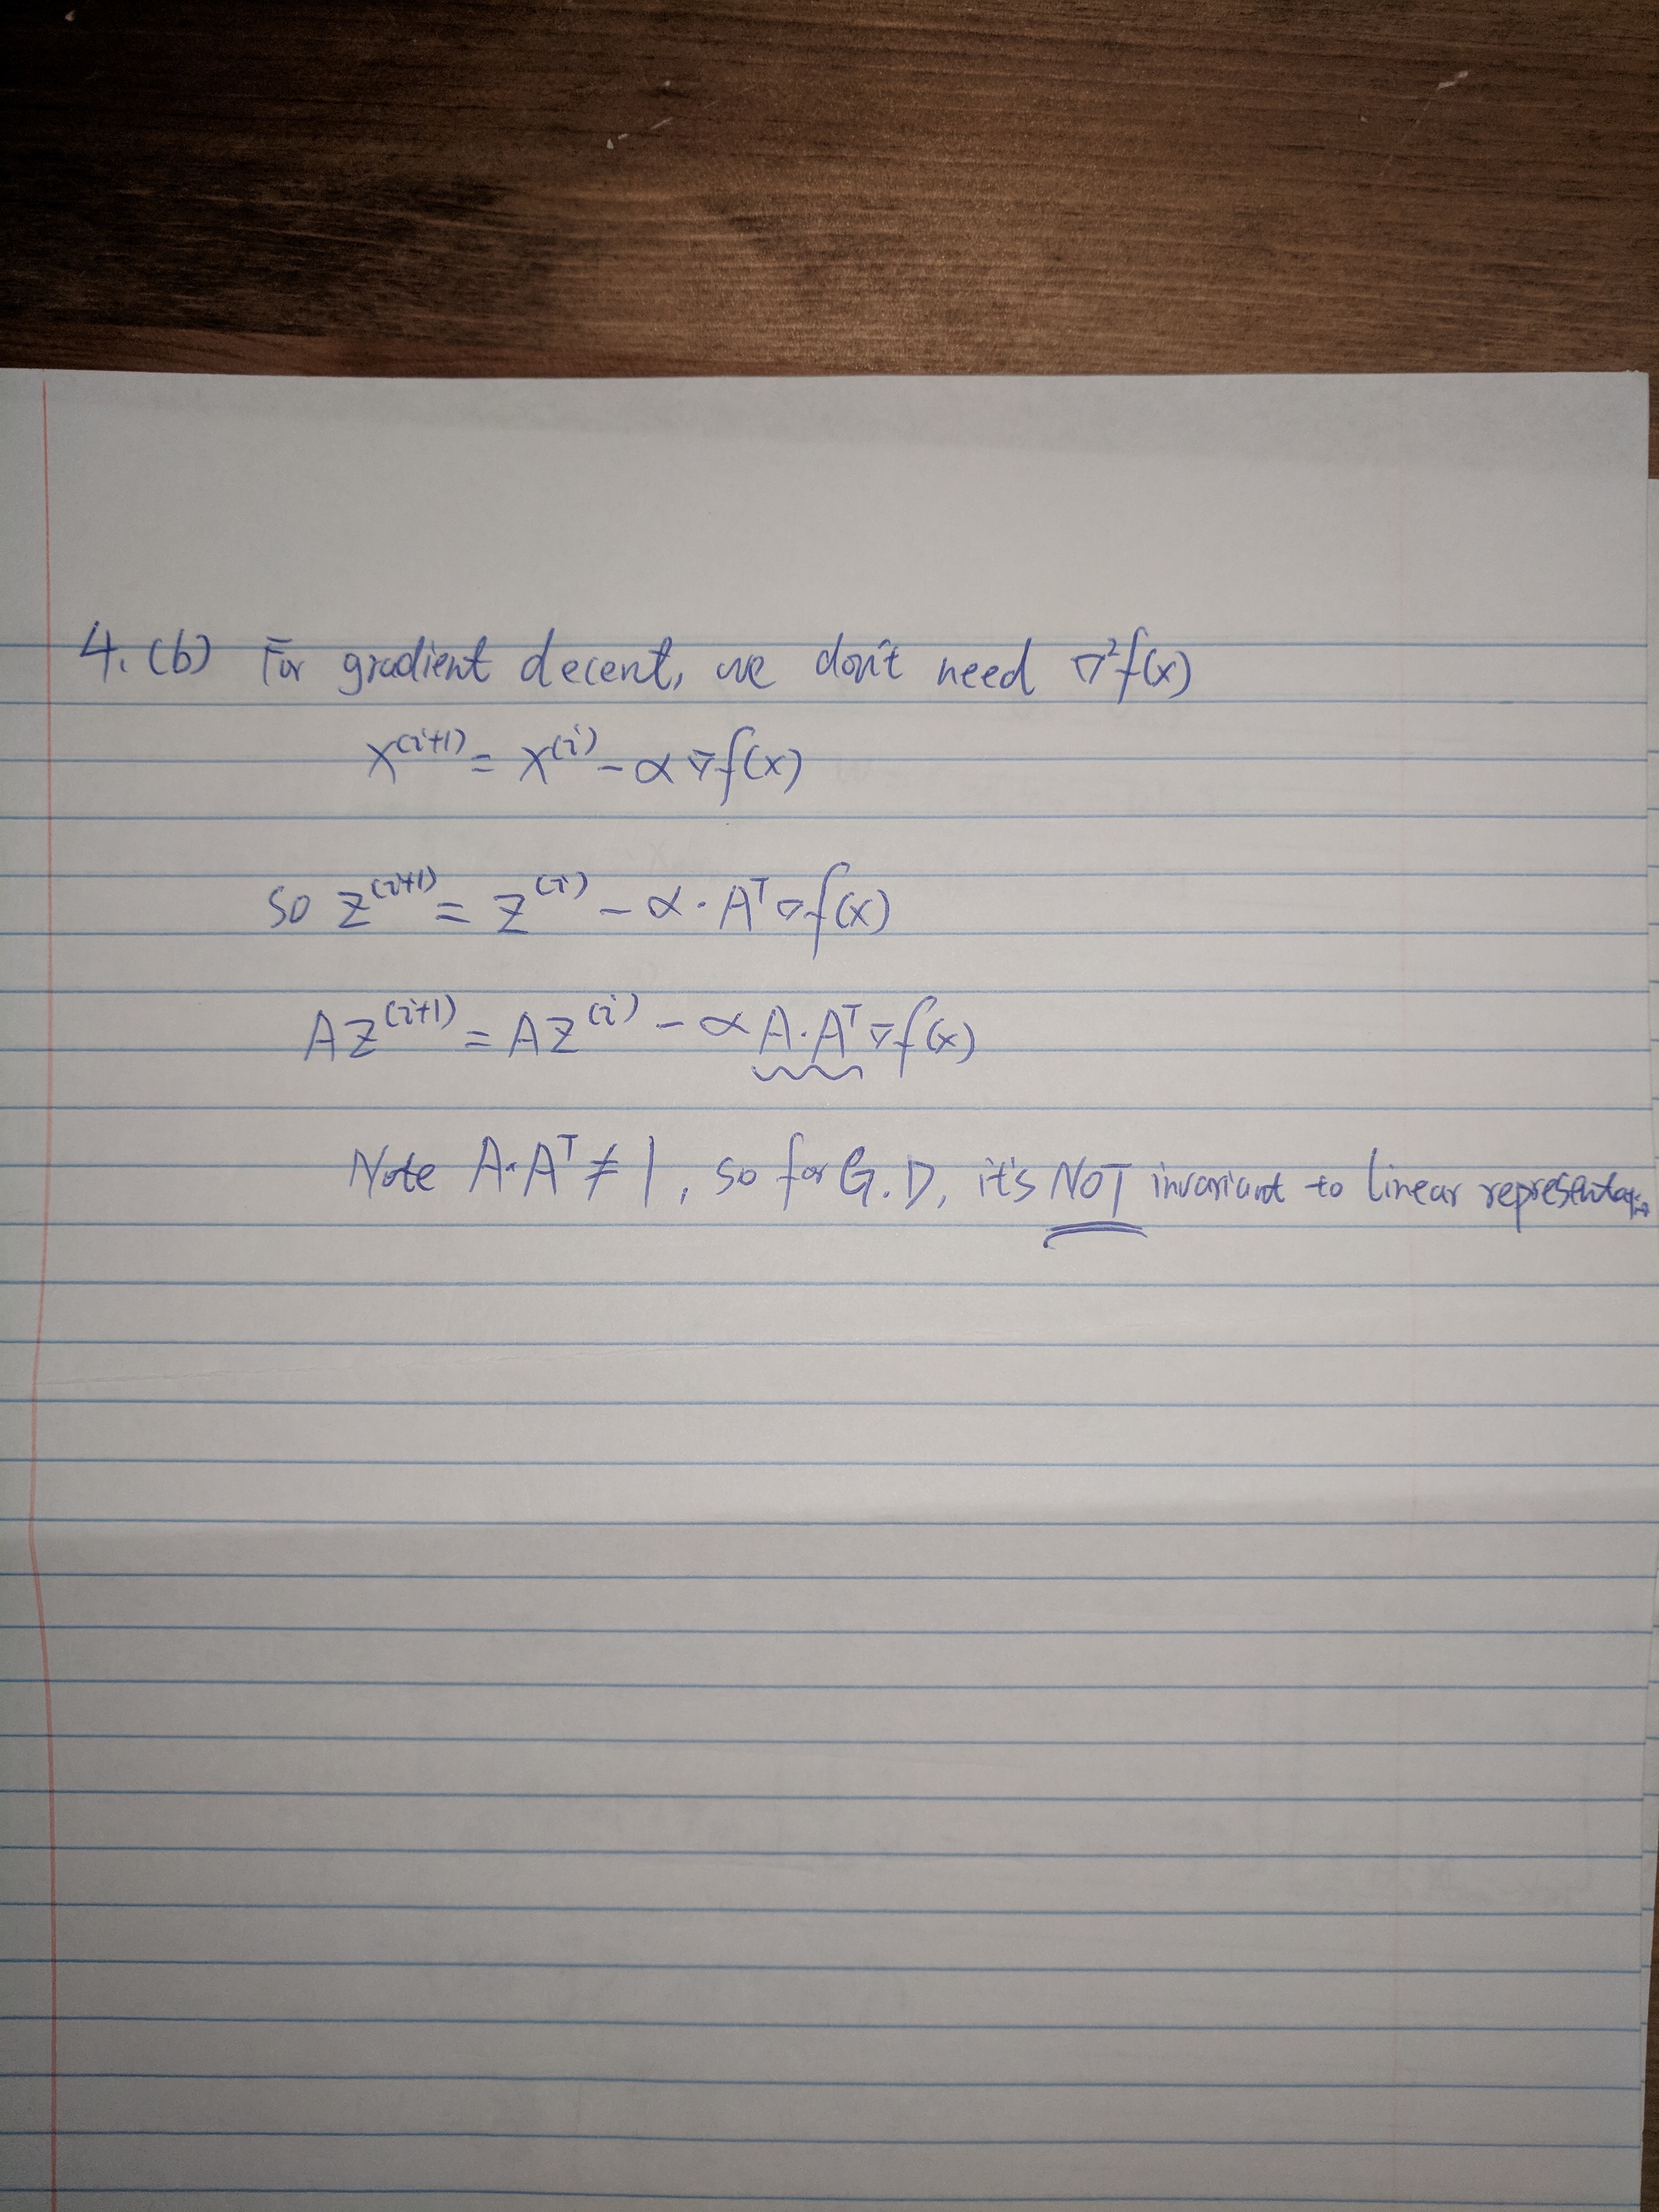 4. (b) For gradient decent, we don't need ∇²f(x)
x^(i+1) = x^(i) - α∇f(x)
so z^(i+1) = z^(i) - α · A^T ∇f(x)
Az^(i+1) = Az^(i) - α A·A^T ∇f(x)
Note A·A^T ≠ 1, so for G.D, it's NOT invariant to linear